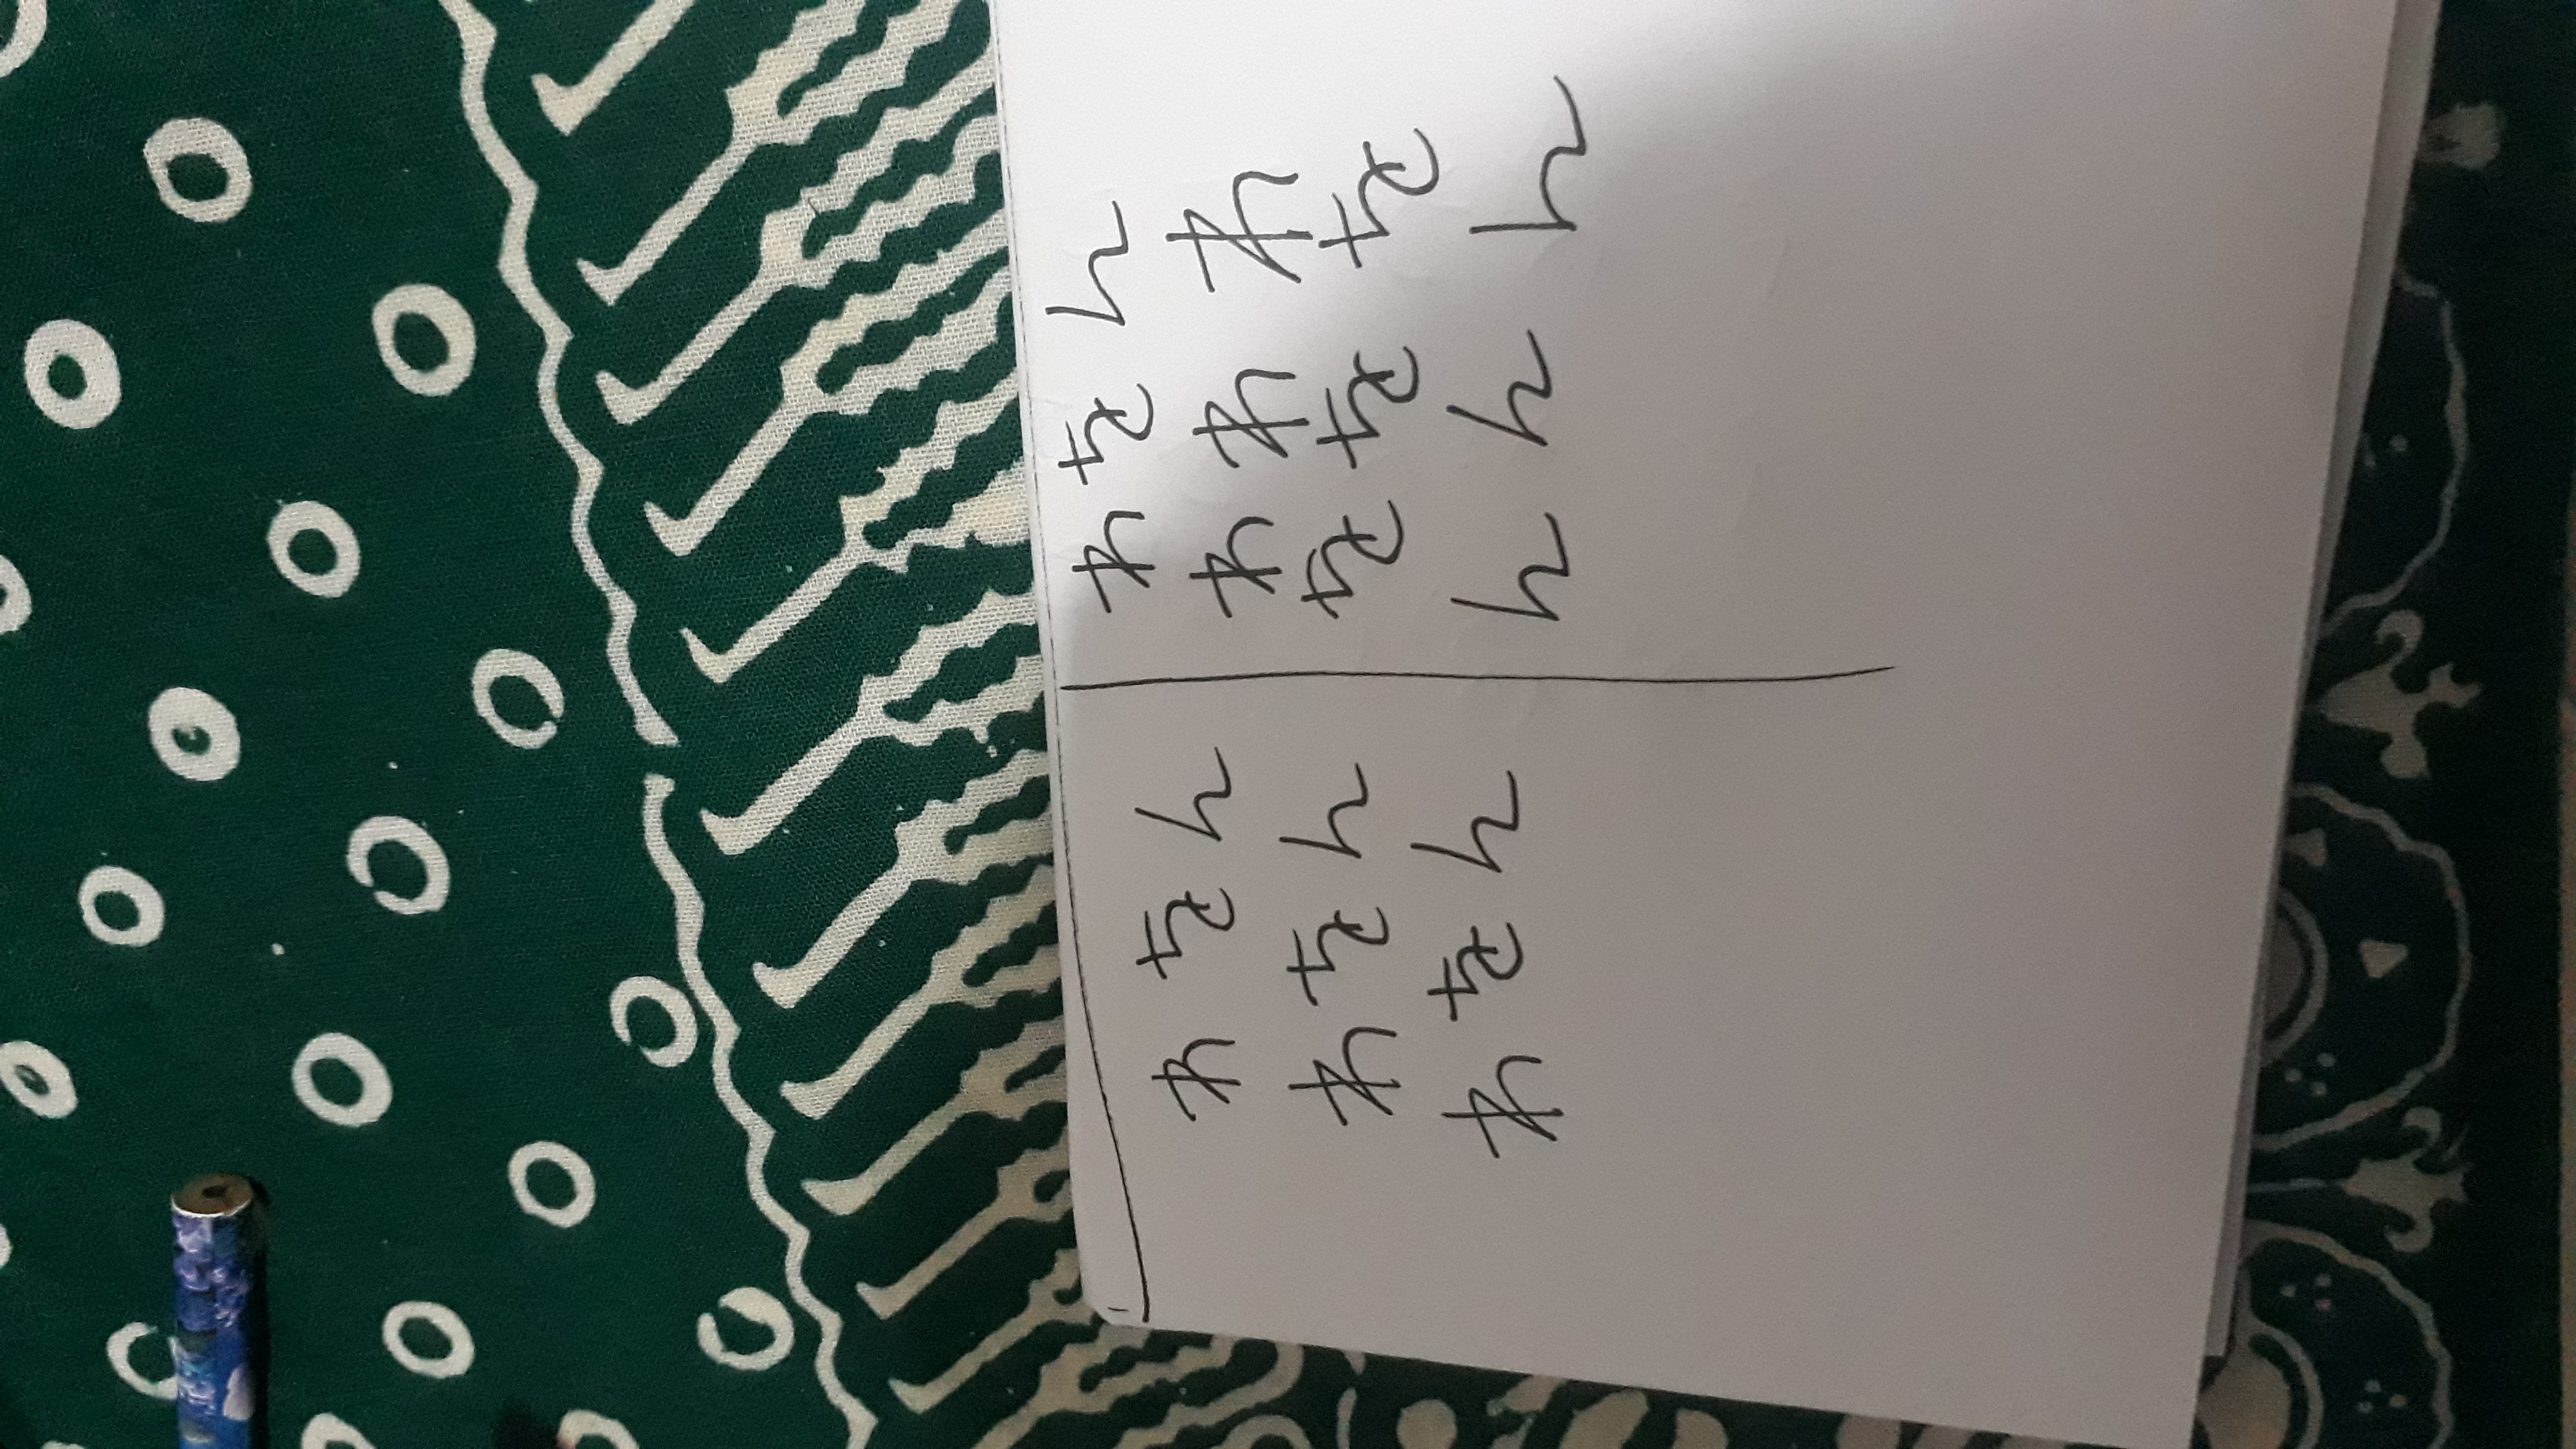 わをん
わをん
わをん
わをん
わわわ
ををを
んんん